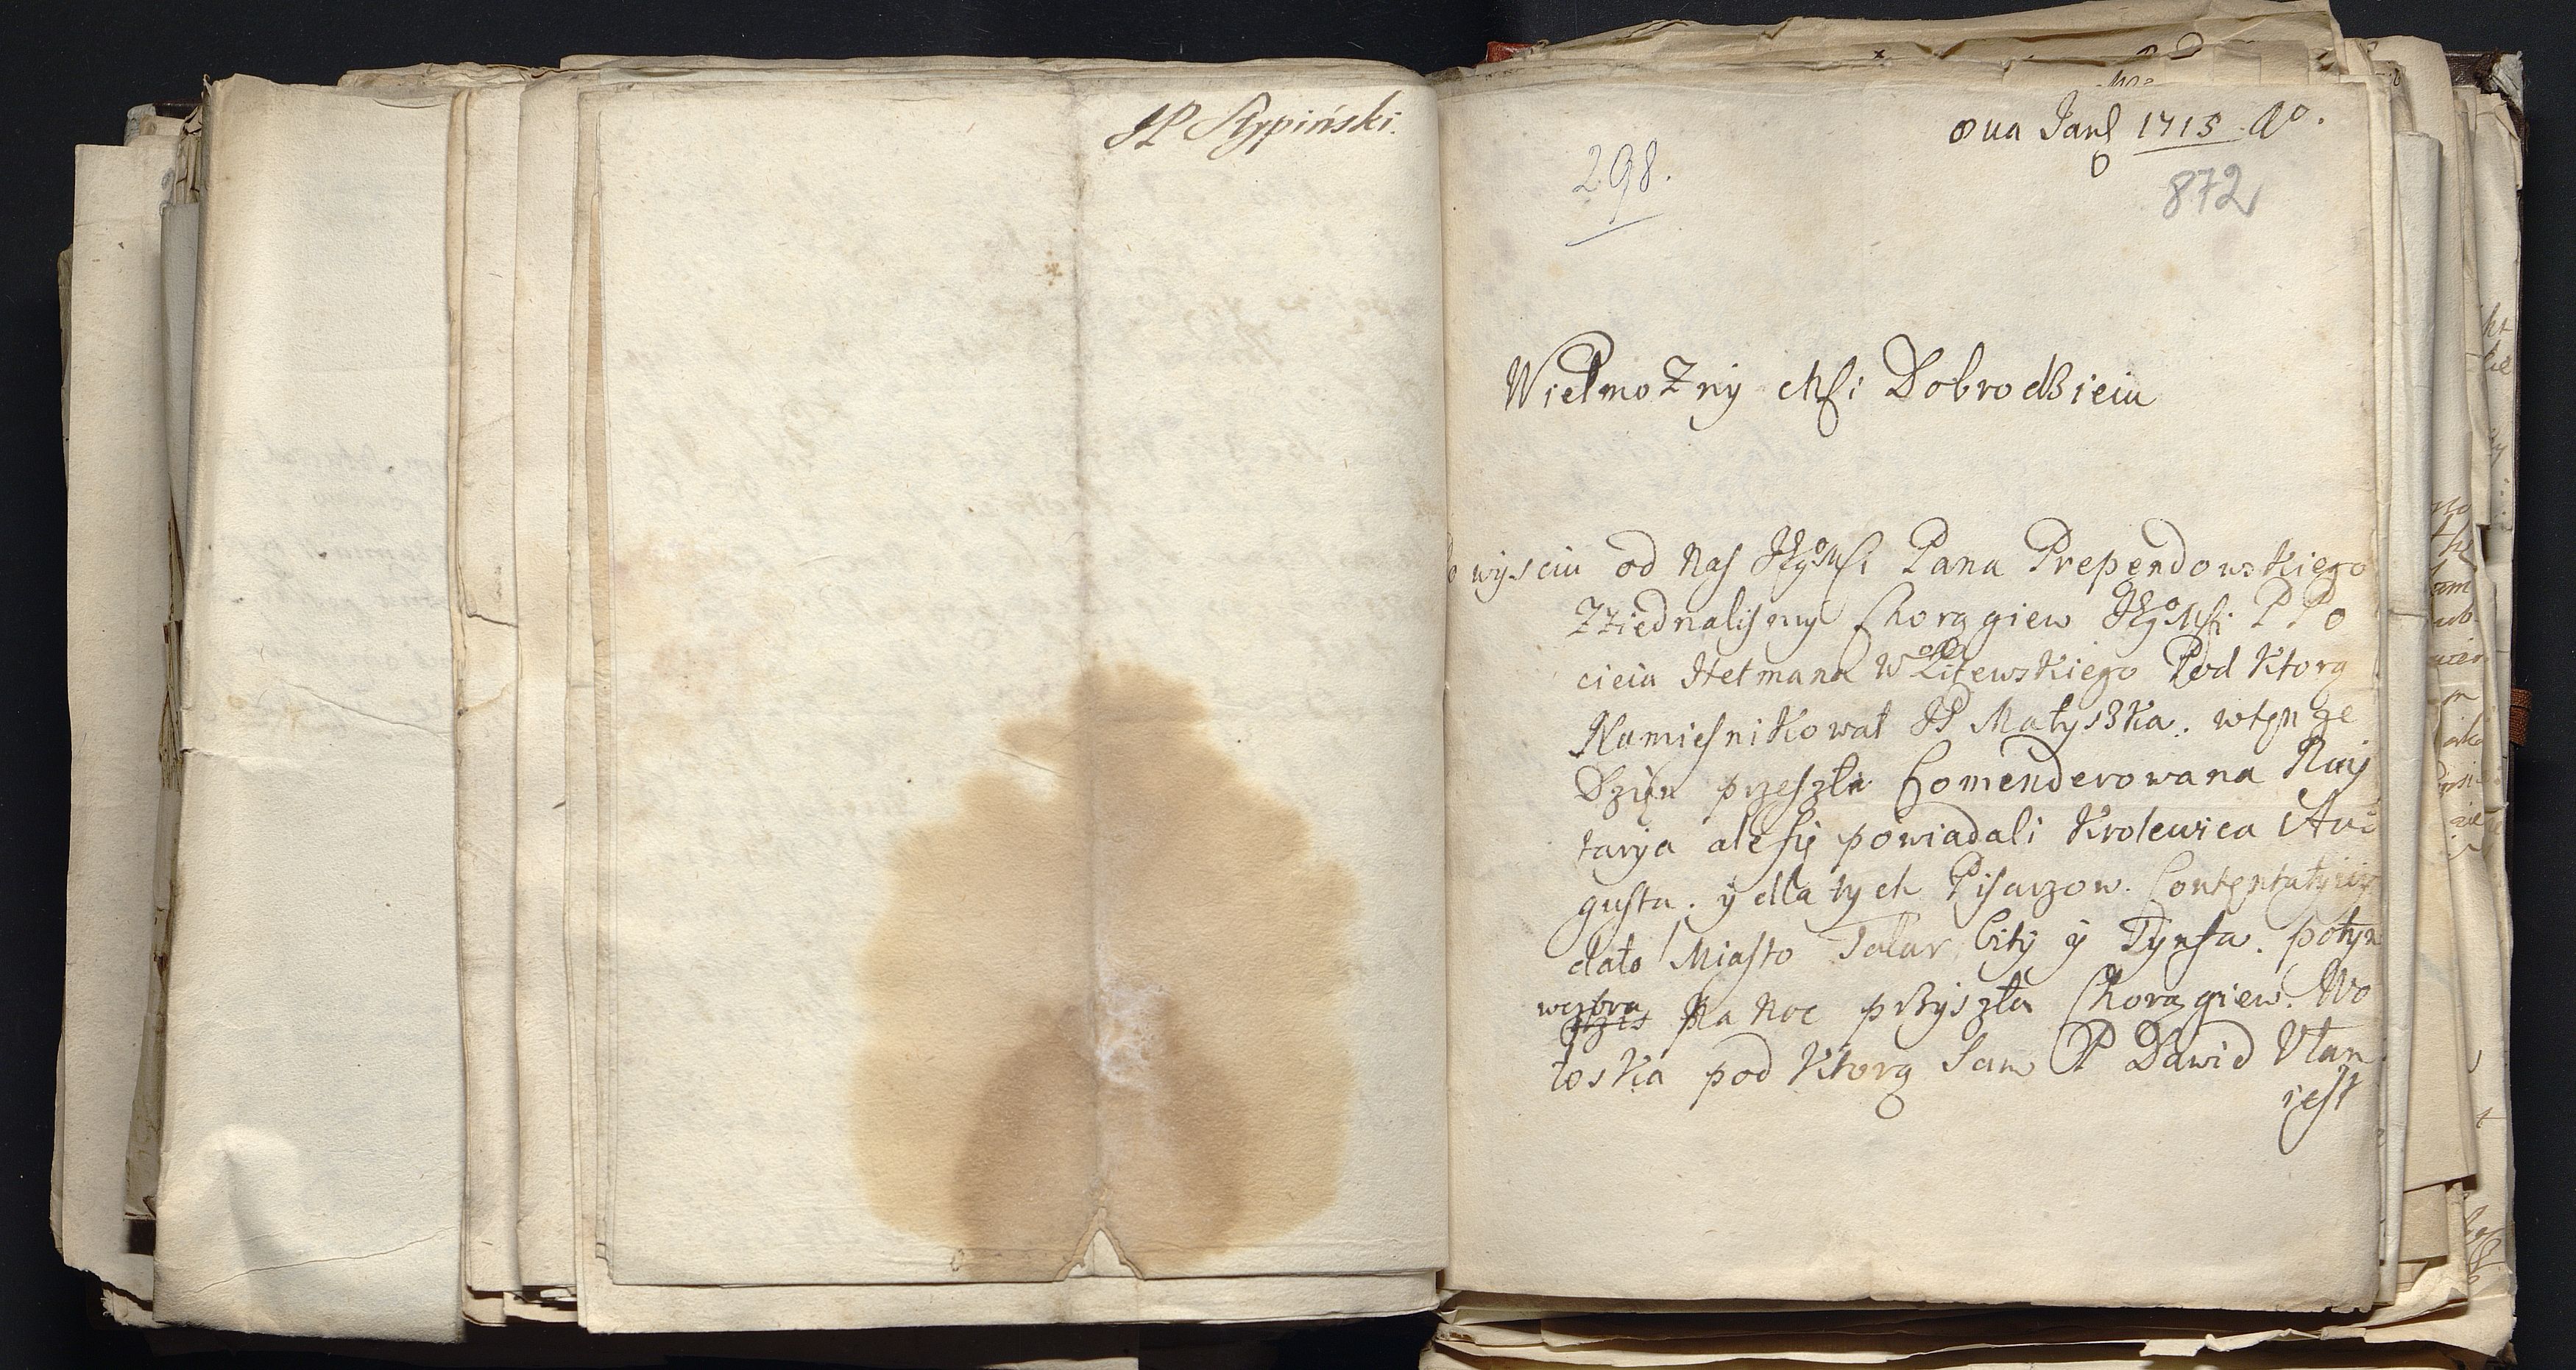 JP Stypiński.
8va Janij 1715 Ao.
298.
872
Wielmozny Mści Dobrodzieiu
wyisciu od Nas JegoMsci Pana Prependowskiego
Zziednalismy Chorągiew JegoMsci P Po
cieia Hetmana W Litewskiego Pod Ktorą
Namiesnikował JP Małyszka. wtęn ze
Dzięn przeszła Comenderowana Raij
tarya ale się powiadali Krolewica Au
gusta. y dla tych Pisarzow. Contentatyią
dało Miasto Talar Bity y Tynfa. potym
wczora Na Noc przyszła Chorągiew. Wo
łoska pod Ktorą Sam P Dawid Ułan
iest